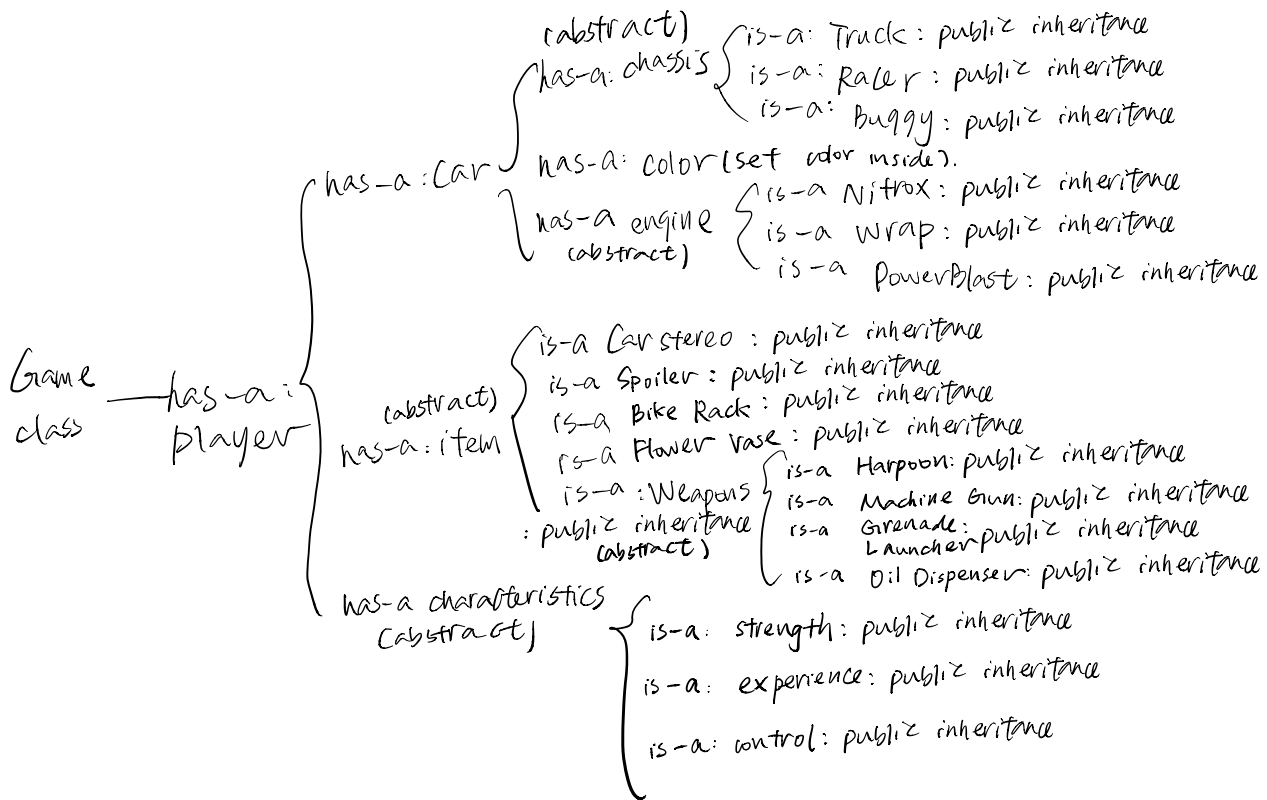 (abstract)
has-a: chassis
is-a: Truck: public inheritance
is-a: Racer: public inheritance
is-a: Buggy: public inheritance
has-a: Car
has-a: color (set color inside).
has-a engine
(abstract)
is-a Nitrox: public inheritance
is-a Wrap: public inheritance
is-a PowerBlast: public inheritance
Game
class
has-a:
player
(abstract)
has-a: item
is-a Car stereo: public inheritance
is-a Spoiler: public inheritance
is-a Bike Rack: public inheritance
is-a Flower vase: public inheritance
is-a: Weapons
: public inheritance
(abstract)
is-a Harpoon: public inheritance
is-a Machine Gun: public inheritance
is-a Grenade:
Launcher public inheritance
is-a Oil Dispenser: public inheritance
has-a characteristics
(abstract)
is-a: strength: public inheritance
is-a: experience: public inheritance
is-a: control: public inheritance